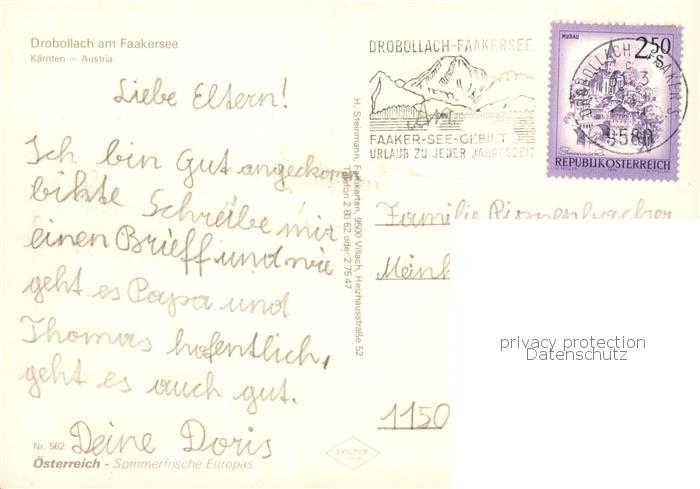 Drobollach am Faakersee
Kärnten — Austria
Liebe Eltern!
Ich bin Gut angekomm
bihte Schreibe mir
einen Brieff und wie
geht es Papa und
Thomas hofentlich,
geht es auch gut.
Deine Doris
Nr. 562
Österreich - Sommerfrische Europas
H. Steinmann, Farbkarten, 9500 Villach, Heizhausstraße 52
Telefon 2 80 62 oder 2 75 47
DROBOLLACH-FAAKERSEE
FAAKER-SEE-GEBIET
URLAUB ZU JEDER JAHRESZEIT
MURAU
2.50
S
REPUBLIK ÖSTERREICH
DROBOLLACH FAAKER S
9580
Familie
Meinh
1150
privacy protection
Datenschutz